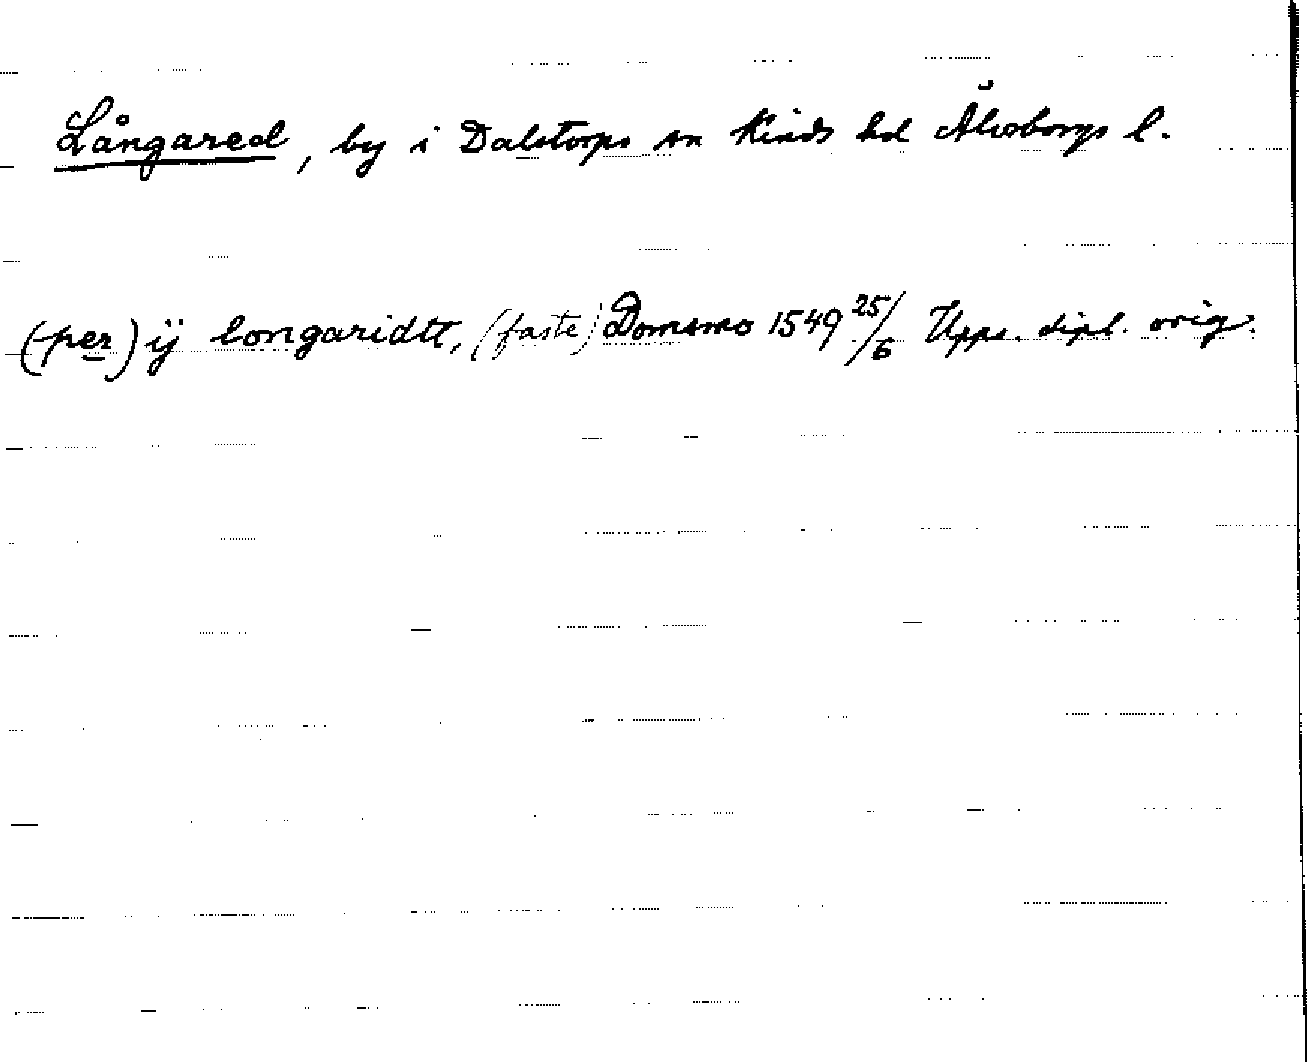 Långared, by i Dalstorps sn Kinds hd Älvsborgs l.
(per) ij longaridtt, (faste) Domsmo 1549 25/6 Upps. dipl. orig.